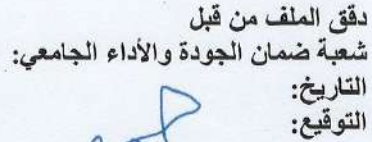 دقق الملف من قبل
شعبة ضمان الجودة والأداء الجامعي:
التاريخ:
التوقيع: